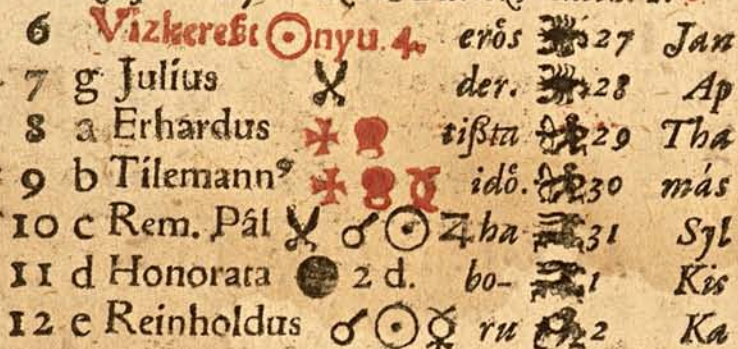 6 Vizkereßt ☉nyu. 4. erős 27 Jan
7 g Julius der. 28 Ap
8 a Erhardus tißta 29 Tha
9 b Tilemannꝰ idő. 30 más
10 c Rem. Pál ☌ ☉ ♃ ha 31 Syl
11 d Honorata ● 2 d. bo- 1 Kis
12 e Reinholdus ☌ ☉ ☿ ru 2 Ka